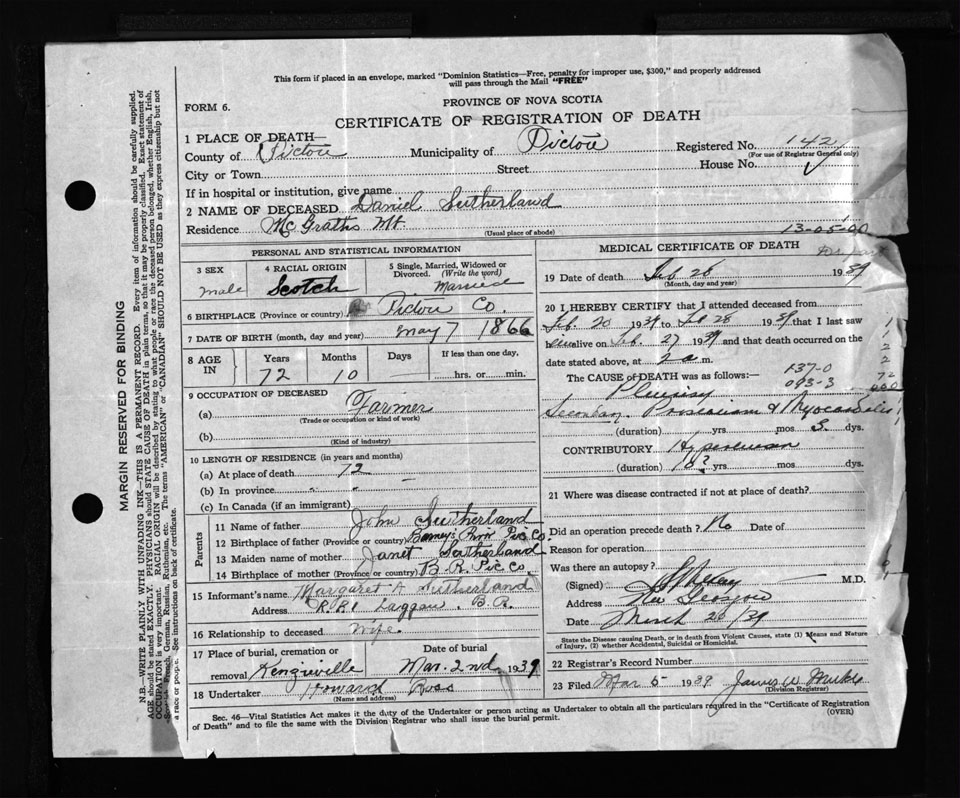 This form if placed in an envelope, marked "Dominion Statistics—Free, penalty for improper use, $300," and properly addressed
will pass through the Mail "FREE"
FORM 6.
PROVINCE OF NOVA SCOTIA
CERTIFICATE OF REGISTRATION OF DEATH
1 PLACE OF DEATH—
County of Pictou Municipality of Pictou Registered No. 142
(For use of Registrar General only)
City or Town Street House No.
If in hospital or institution, give name
2 NAME OF DECEASED Daniel Sutherland
Residence McGraths Mt.
(Usual place of abode)
13-05-00
PERSONAL AND STATISTICAL INFORMATION
3 SEX
male
4 RACIAL ORIGIN
Scotch
5 Single, Married, Widowed or
Divorced. (Write the word)
Married
6 BIRTHPLACE (Province or country) Pictou Co.
7 DATE OF BIRTH (month, day and year) May 7 1866
8 AGE IN
Years Months Days If less than one day.
72 10 hrs. or min.
9 OCCUPATION OF DECEASED
(a) Farmer
(Trade or occupation or kind of work)
(b)
(Kind of industry)
10 LENGTH OF RESIDENCE (in years and months)
(a) At place of death 72
(b) In province " "
(c) In Canada (if an immigrant)
Parents
11 Name of father John Sutherland
12 Birthplace of father (Province or country) Barney's River Pic Co.
13 Maiden name of mother Janet Sutherland
14 Birthplace of mother (Province or country) B.R. Pic Co.
15 Informant's name Margaret A Sutherland
Address R.R.1 Laggan. B.R.
16 Relationship to deceased Wife.
17 Place of burial, cremation or Date of burial
removal Kenzieville Mar. 2nd 1939
18 Undertaker Howard Ross
(Name and address)
MEDICAL CERTIFICATE OF DEATH
19 Date of death Feb 28 1939
(Month, day and year)
20 I HEREBY CERTIFY that I attended deceased from
Feb. 20 1939 to Feb 28 1939 that I last saw
him alive on Feb. 27 1939 and that death occurred on the
date stated above, at 2 a m.
The CAUSE OF DEATH was as follows:— 137-0
093-3
Secondary &
(duration) yrs. mos 3 dys.
CONTRIBUTORY
(duration) 10? yrs mos dys.
21 Where was disease contracted if not at place of death?
Did an operation precede death? No Date of
Reason for operation
Was there an autopsy?
(Signed) M.D.
Address New Glasgow
Date March 20/39
State the Disease causing Death, or in death from Violent Causes, state (1) Means and Nature
of Injury, (2) whether Accidental, Suicidal or Homicidal.
22 Registrar's Record Number
23 Filed Mar 5 1939 James W
(Division Registrar)
Sec. 46—Vital Statistics Act makes it the duty of the Undertaker or person acting as Undertaker to obtain all the particulars required in the "Certificate of Registration
of Death" and to file the same with the Division Registrar who shall issue the burial permit.
(OVER)
MARGIN RESERVED FOR BINDING
N.B.—WRITE PLAINLY WITH UNFADING INK—THIS IS A PERMANENT RECORD. Every item of information should be carefully supplied.
AGE should be stated EXACTLY. PHYSICIANS should STATE CAUSE OF DEATH in plain terms, so that it may be properly classified. Exact statement of
OCCUPATION is very important. RACIAL ORIGIN will be described by stating to what people or race the deceased person belonged, whether English, Irish,
Scottish, French, German, Russian, Ruthenian, etc. The terms "AMERICAN" or "CANADIAN" SHOULD NOT BE USED as they express citizenship but not
a race or people. See instructions on back of certificate.